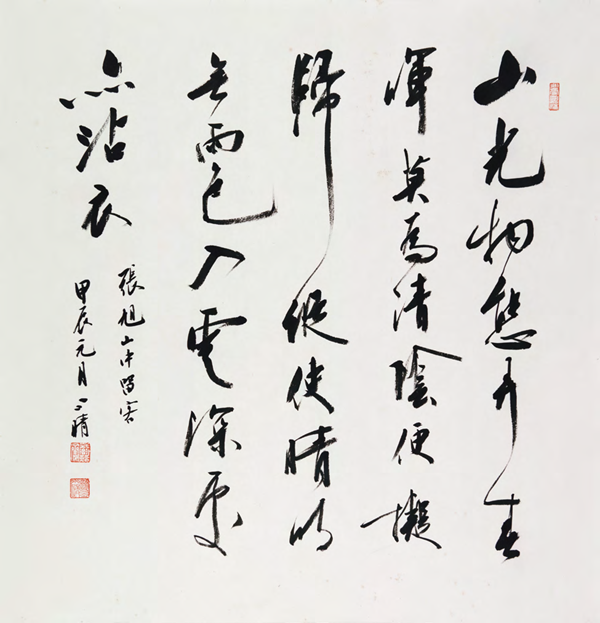 山光物態弄春
暉莫為清陰便擬
歸縱使晴明
無雨色入雲深處
亦沾衣
張旭山中留客
甲辰元月